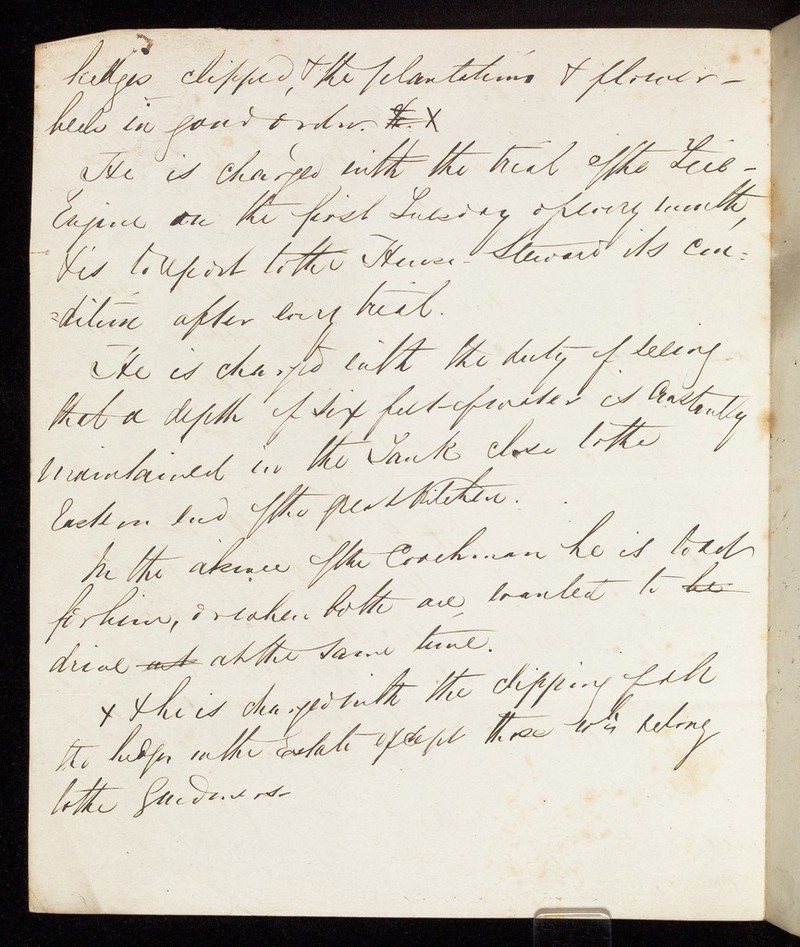 hedges clipped, & the plantations & flower-
beds in good order. X
He is charged with the trial of the Fire-
Engine on the first Tuesday of every month,
& is to report to the House-Steward its con=
=dition after every trial.
He is charged with the duty of seeing
that a depth of six feet of water is constantly
maintained in the Tank close to the
Eastern end of the great Kitchen.
In the absence of the Coachman he is to act
for him, or when both are wanted to be
drive at the same time.
x & he is charged with the clipping of all
the hedges on the Estate except those wh belong
to the Gardeners